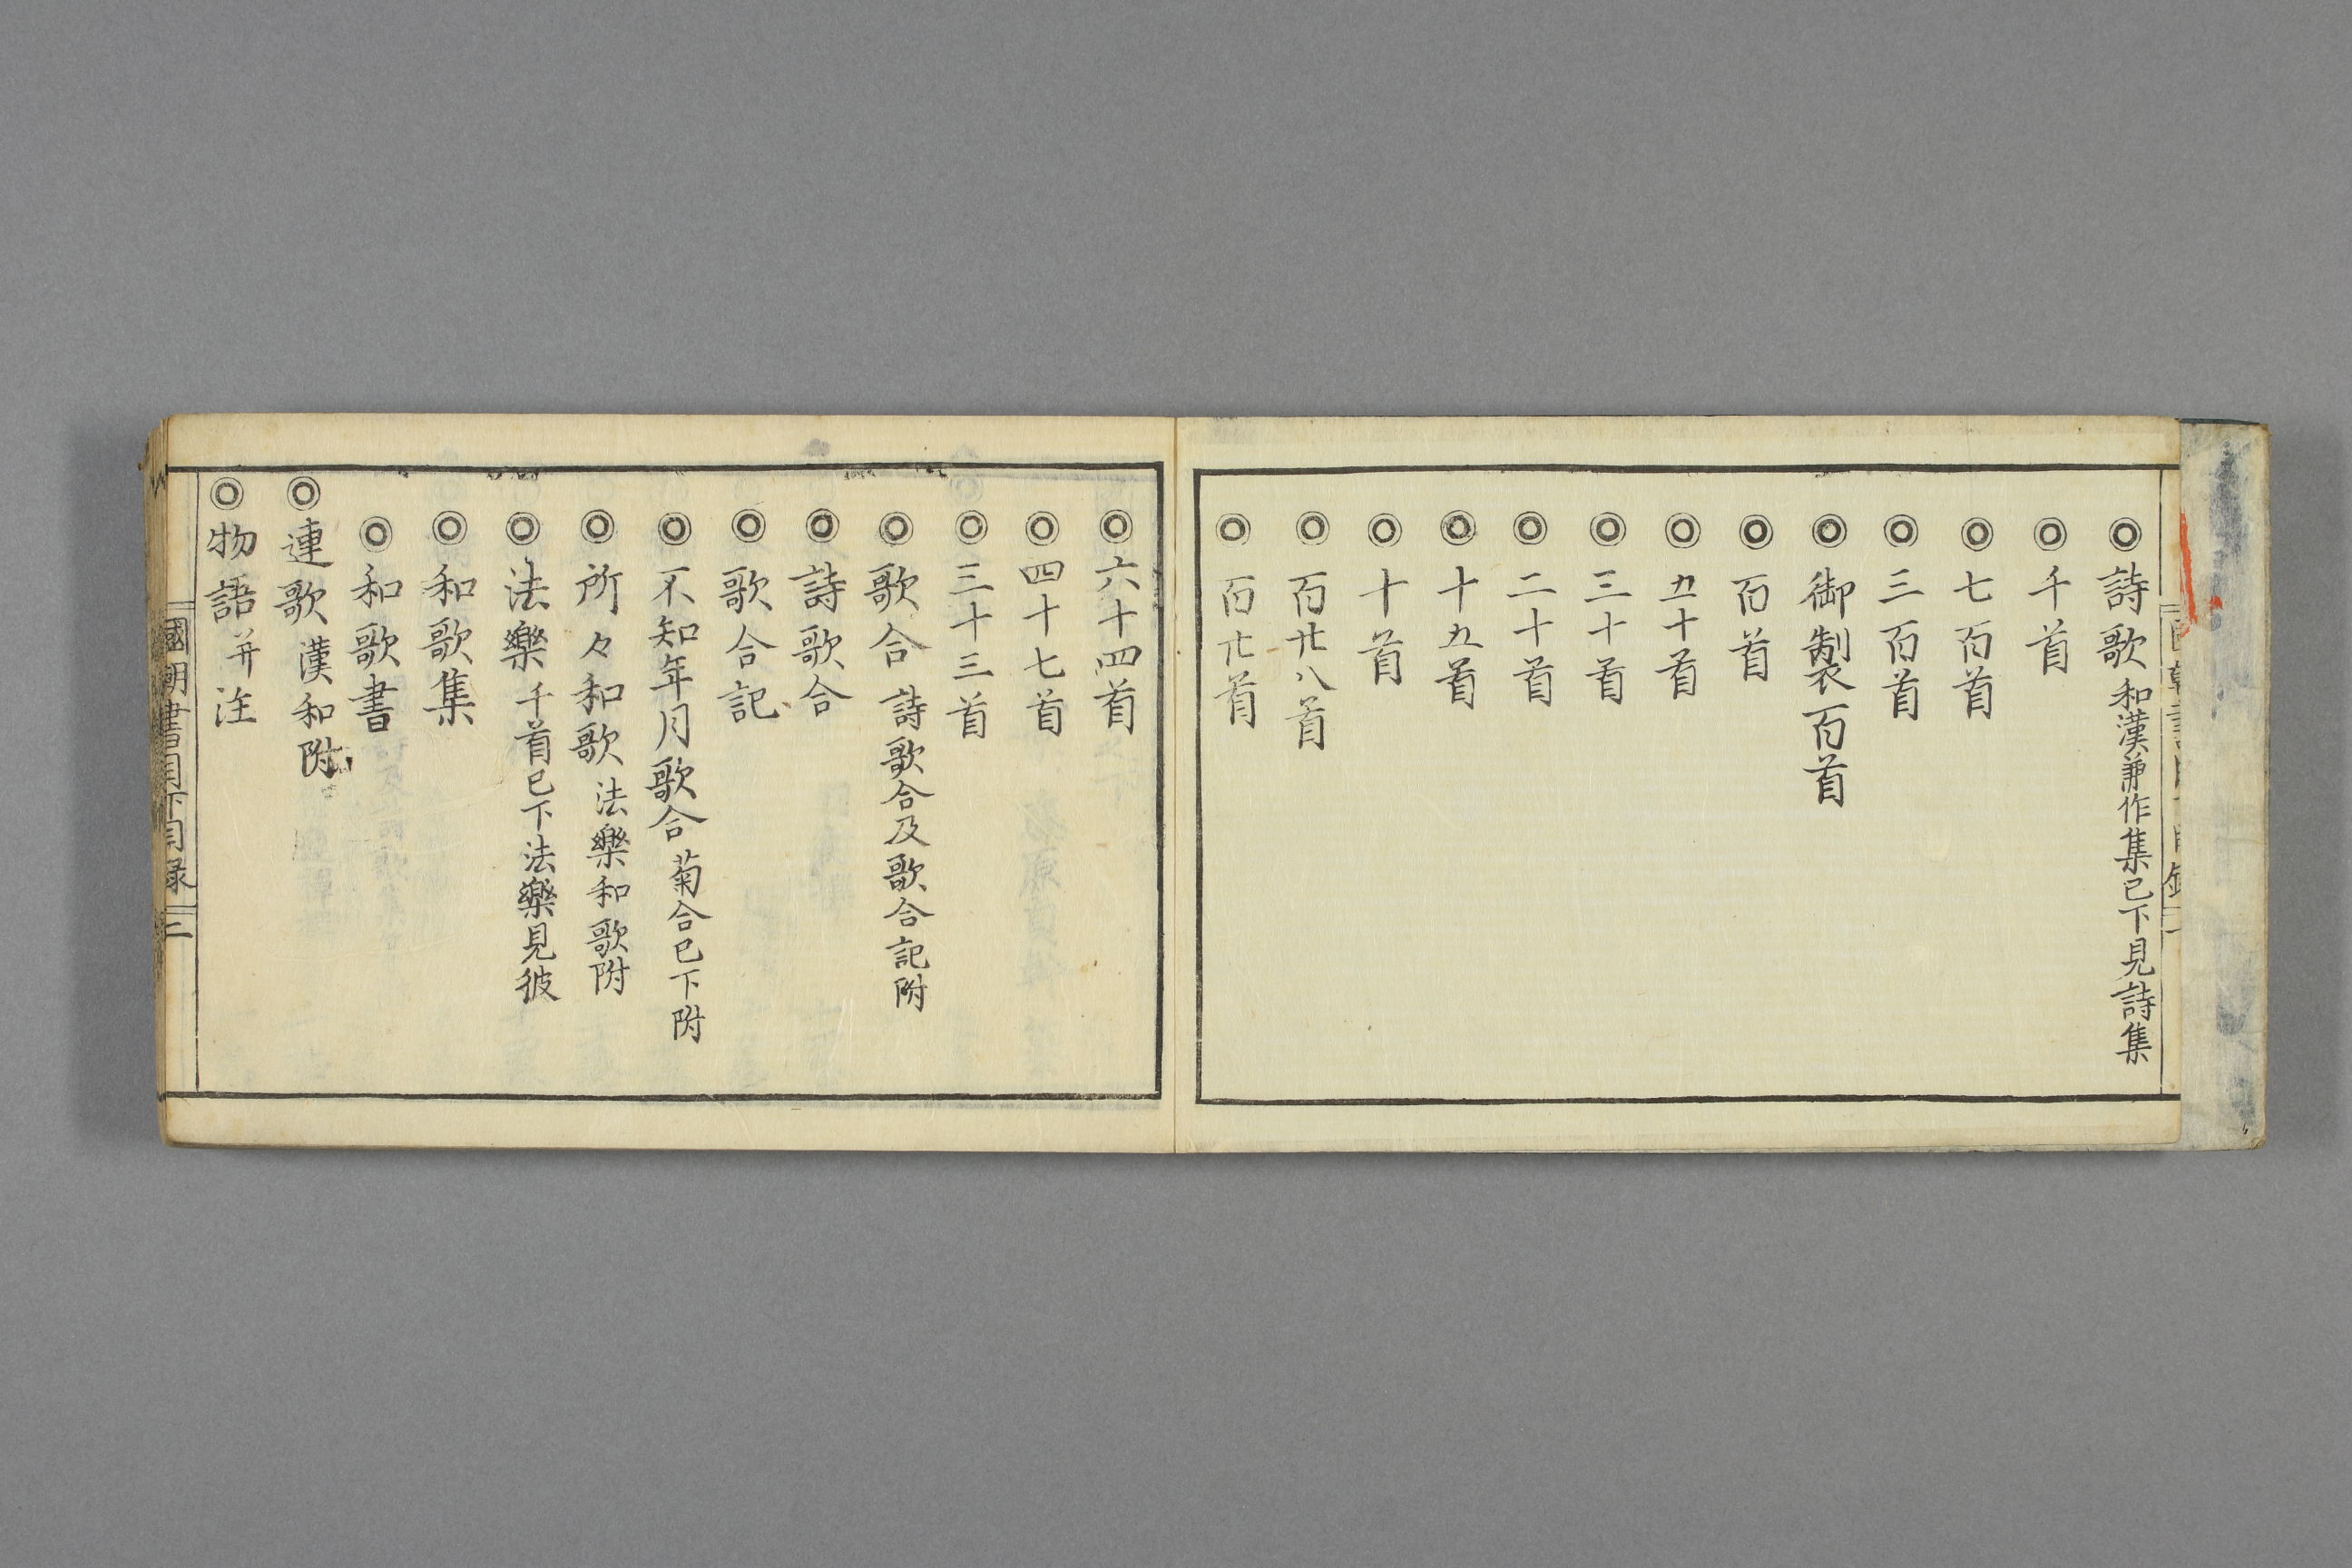 ◎詩歌 和漢兼作集已下見詩集
◎千首
◎七百首
◎三百首
◎御製百首
◎百首
◎五十首
◎三十首
◎二十首
◎十五首
◎十首
◎百廿八首
◎百廿首
◎六十四首
◎四十七首
◎三十三首
◎歌合 詩歌合及歌合記附
◎詩歌合
◎歌合記
◎不知年月歌合 菊合已下附
◎所々和歌 法樂和歌附
◎法樂 千首已下法樂見彼
◎和歌集
◎和歌書
◎連歌 漢和附
◎物語 并注
國朝書目下目録 二